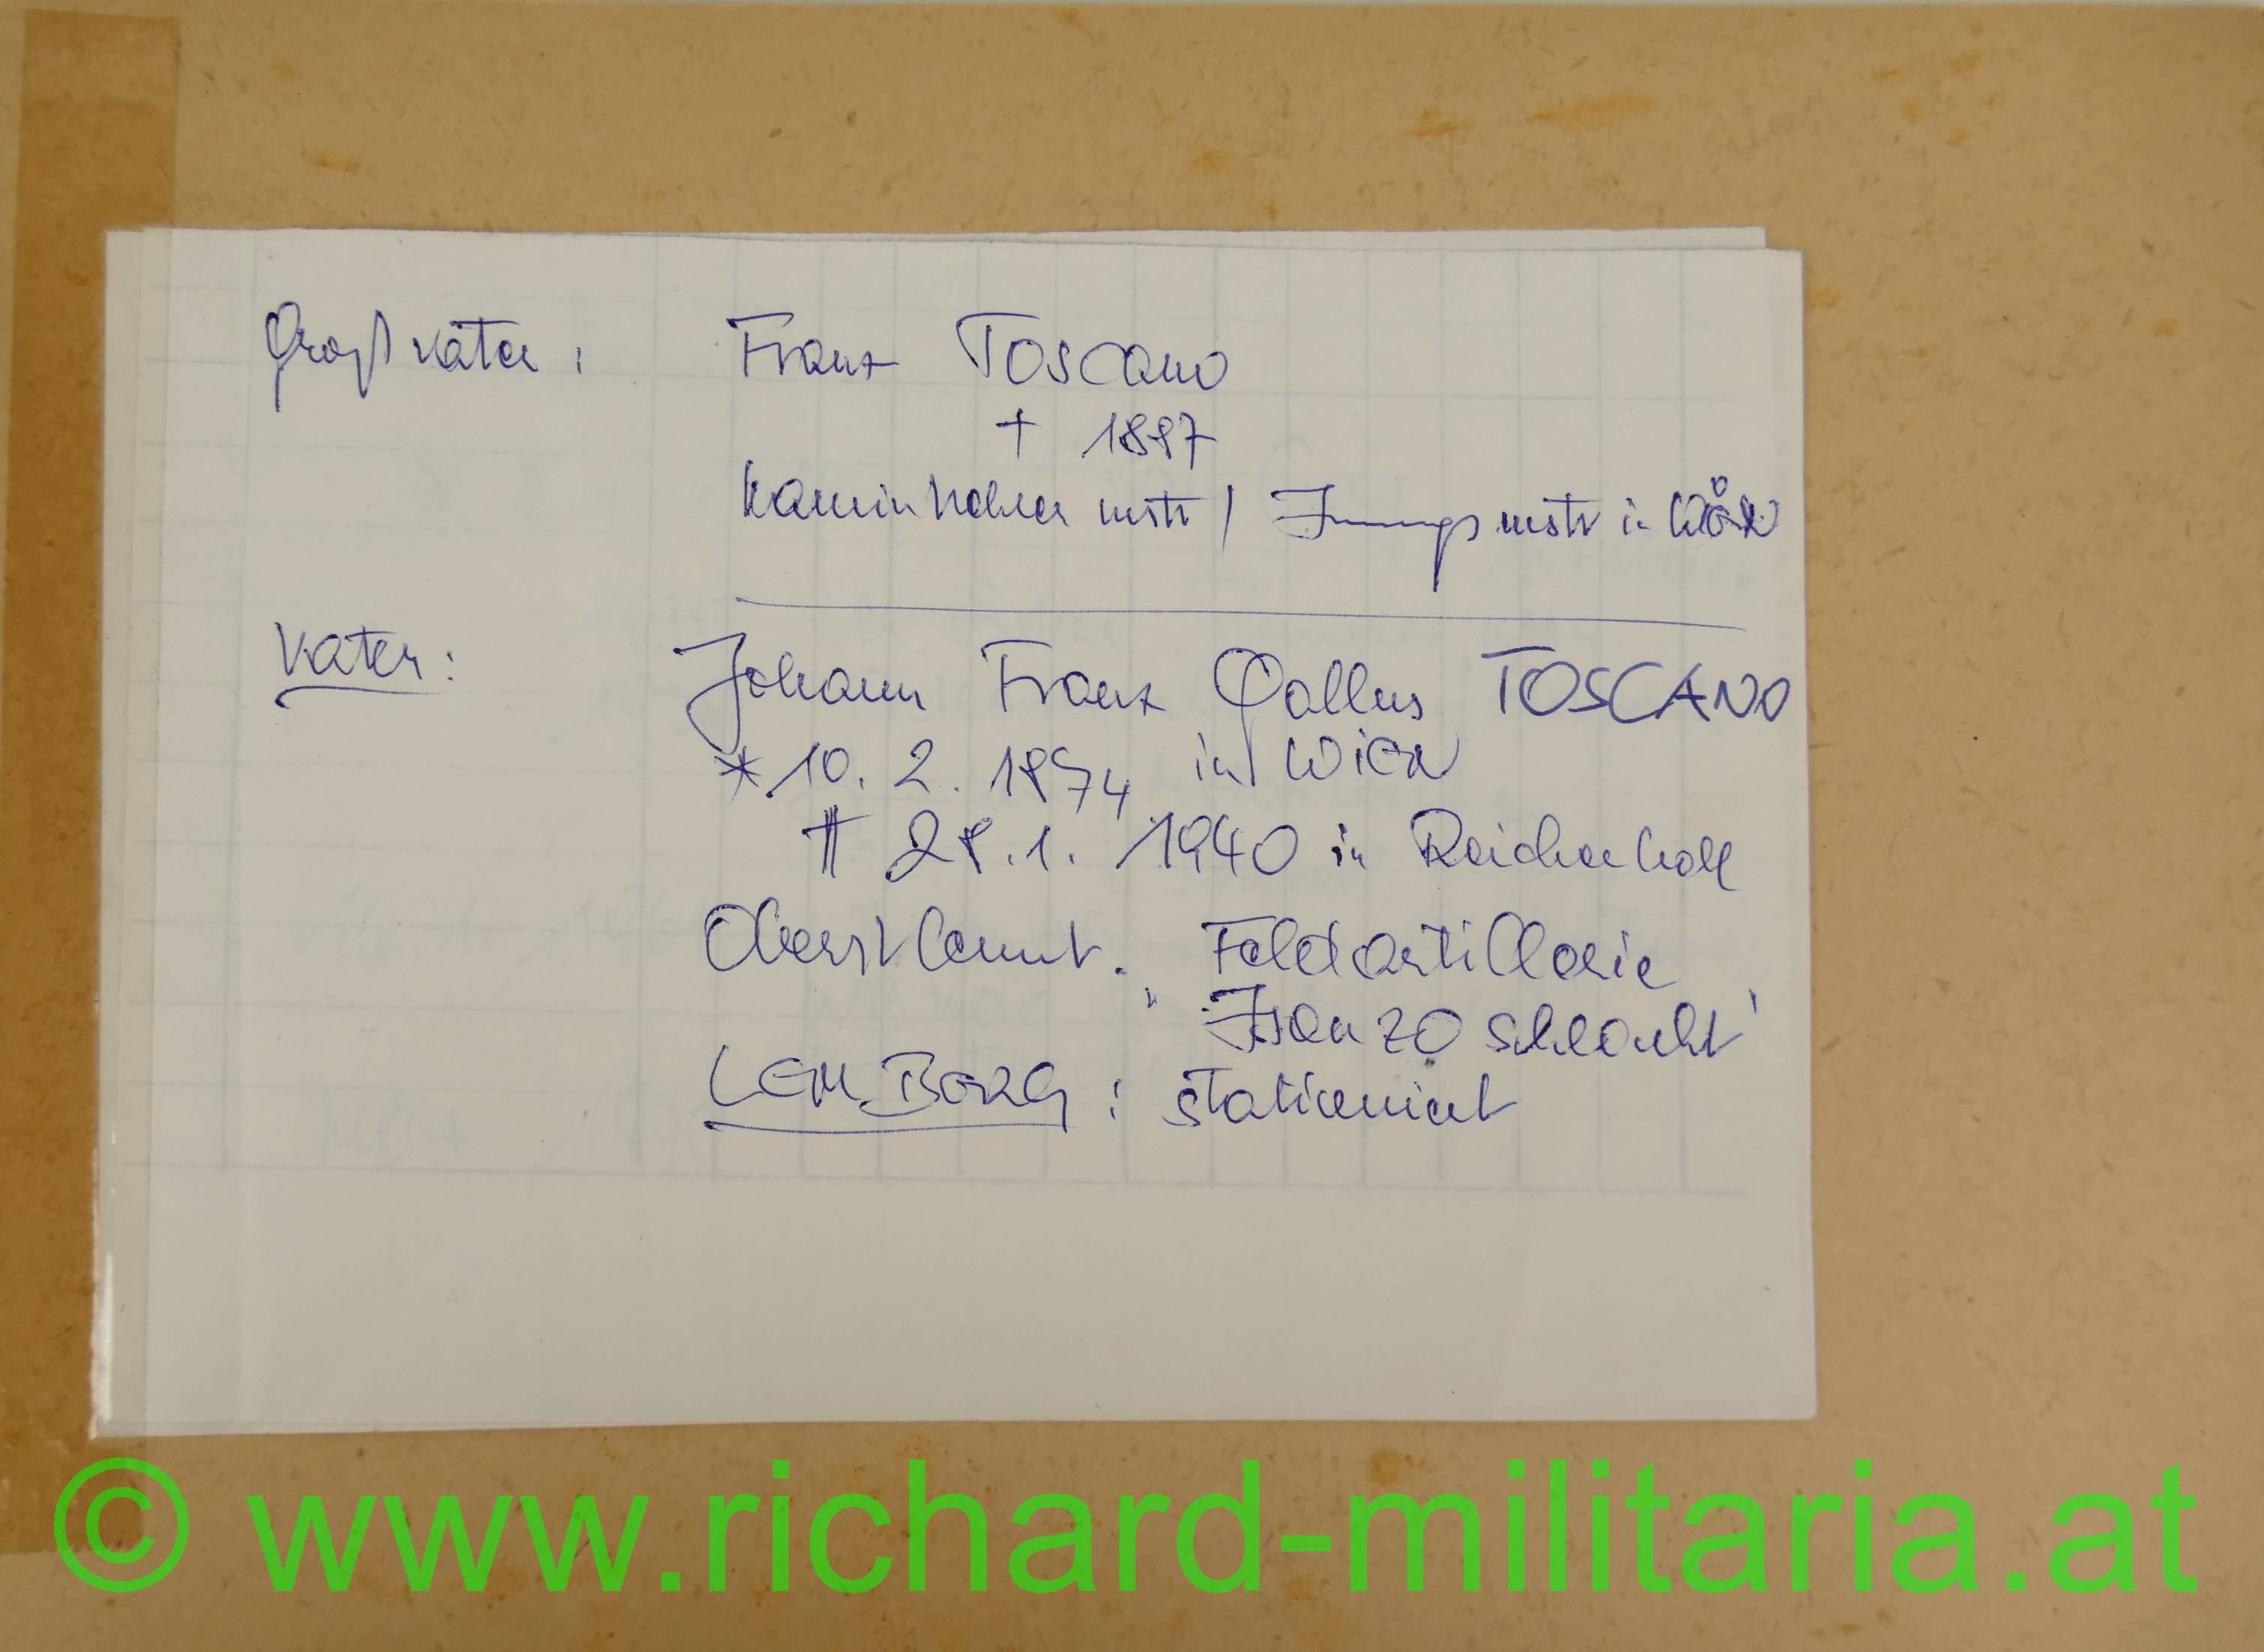 Großvater: Franz TOSCANO
† 1887
Kaminkehrer mstr / Innungsmstr in
Vater: Johann Franz Gallus TOSCANO
* 10. 2. 1874 in Wien
† 28. 1. 1940 in Reichenhall
Oberstleunt. Feldartillerie
"Isonzoschlacht"
LEMBERG: stationiert
© www.richard-militaria.at